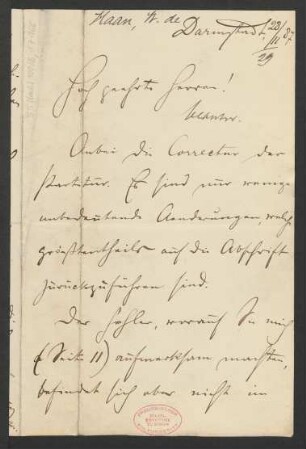 Haan, W. de
Darmstadt, 28/11 87
29
Hochgeehrte Herren!
beantw.
Anbei die Correctur der
Partitur. Es sind nur wenige
unbedeutende Aenderungen, welche
größtentheils auf die Abschrift
zurückzuführen sind.
Der Fehler, worauf Sie mich
(Seite 11) aufmerksam machten,
befindet sich aber nicht im